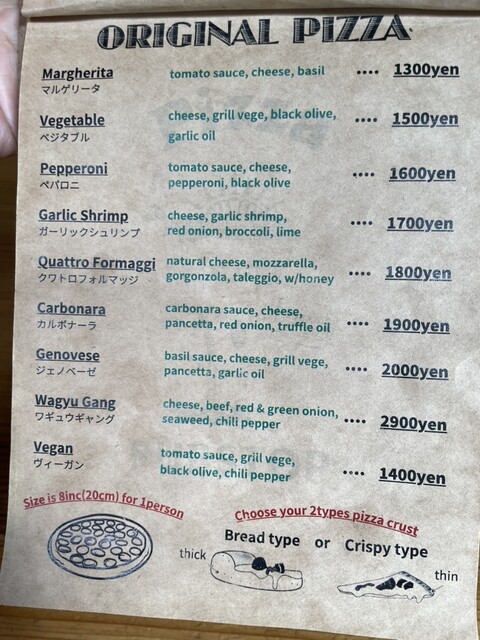 ORIGINAL PIZZA
Margherita tomato sauce, cheese, basil •••• 1300yen
マルゲリータ
Vegetable cheese, grill vege, black olive, •••• 1500yen
ベジタブル garlic oil
Pepperoni tomato sauce, cheese, •••• 1600yen
ペパロニ pepperoni, black olive
Garlic Shrimp cheese, garlic shrimp, •••• 1700yen
ガーリックシュリンプ red onion, broccoli, lime
Quattro Formaggi natural cheese, mozzarella, •••• 1800yen
クワトロフォルマッジ gorgonzola, taleggio, w/honey
Carbonara carbonara sauce, cheese, •••• 1900yen
カルボナーラ pancetta, red onion, truffle oil
Genovese basil sauce, cheese, grill vege, •••• 2000yen
ジェノベーゼ pancetta, garlic oil
Wagyu Gang cheese, beef, red & green onion, •••• 2900yen
ワギュウギャング seaweed, chili pepper
Vegan tomato sauce, griil vege, •••• 1400yen
ヴィーガン black olive, chili pepper
Size is 8inc(20cm) for 1person
Choose your 2types pizza crust
Bread type or Crispy type
thick
thin